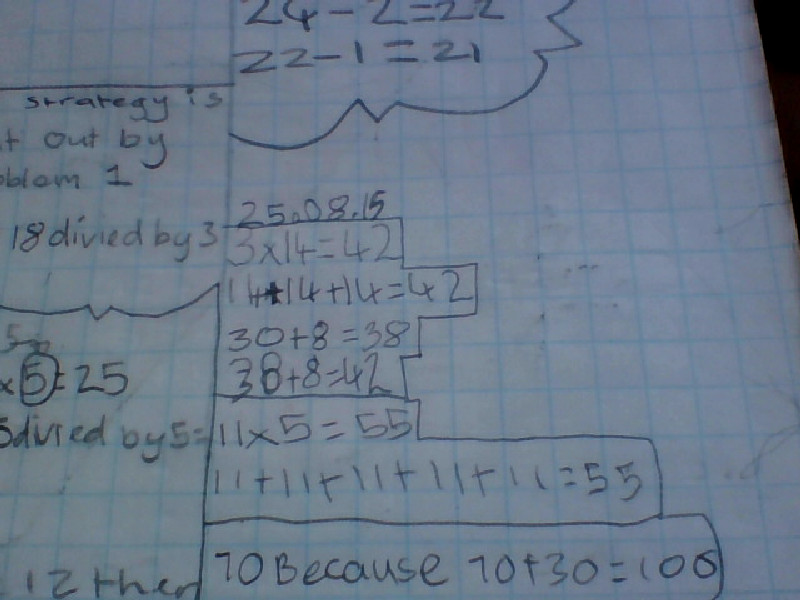 24-2=22
22-1=21
strategy is
out by
1
18 divied by 3
5
x5=25
divied by 5=
12 then
25.08.15
3x14=42
14+14+14=42
30+8=38
38+8=42
11x5=55
11+11+11+11+11=55
70 Because 70+30=100